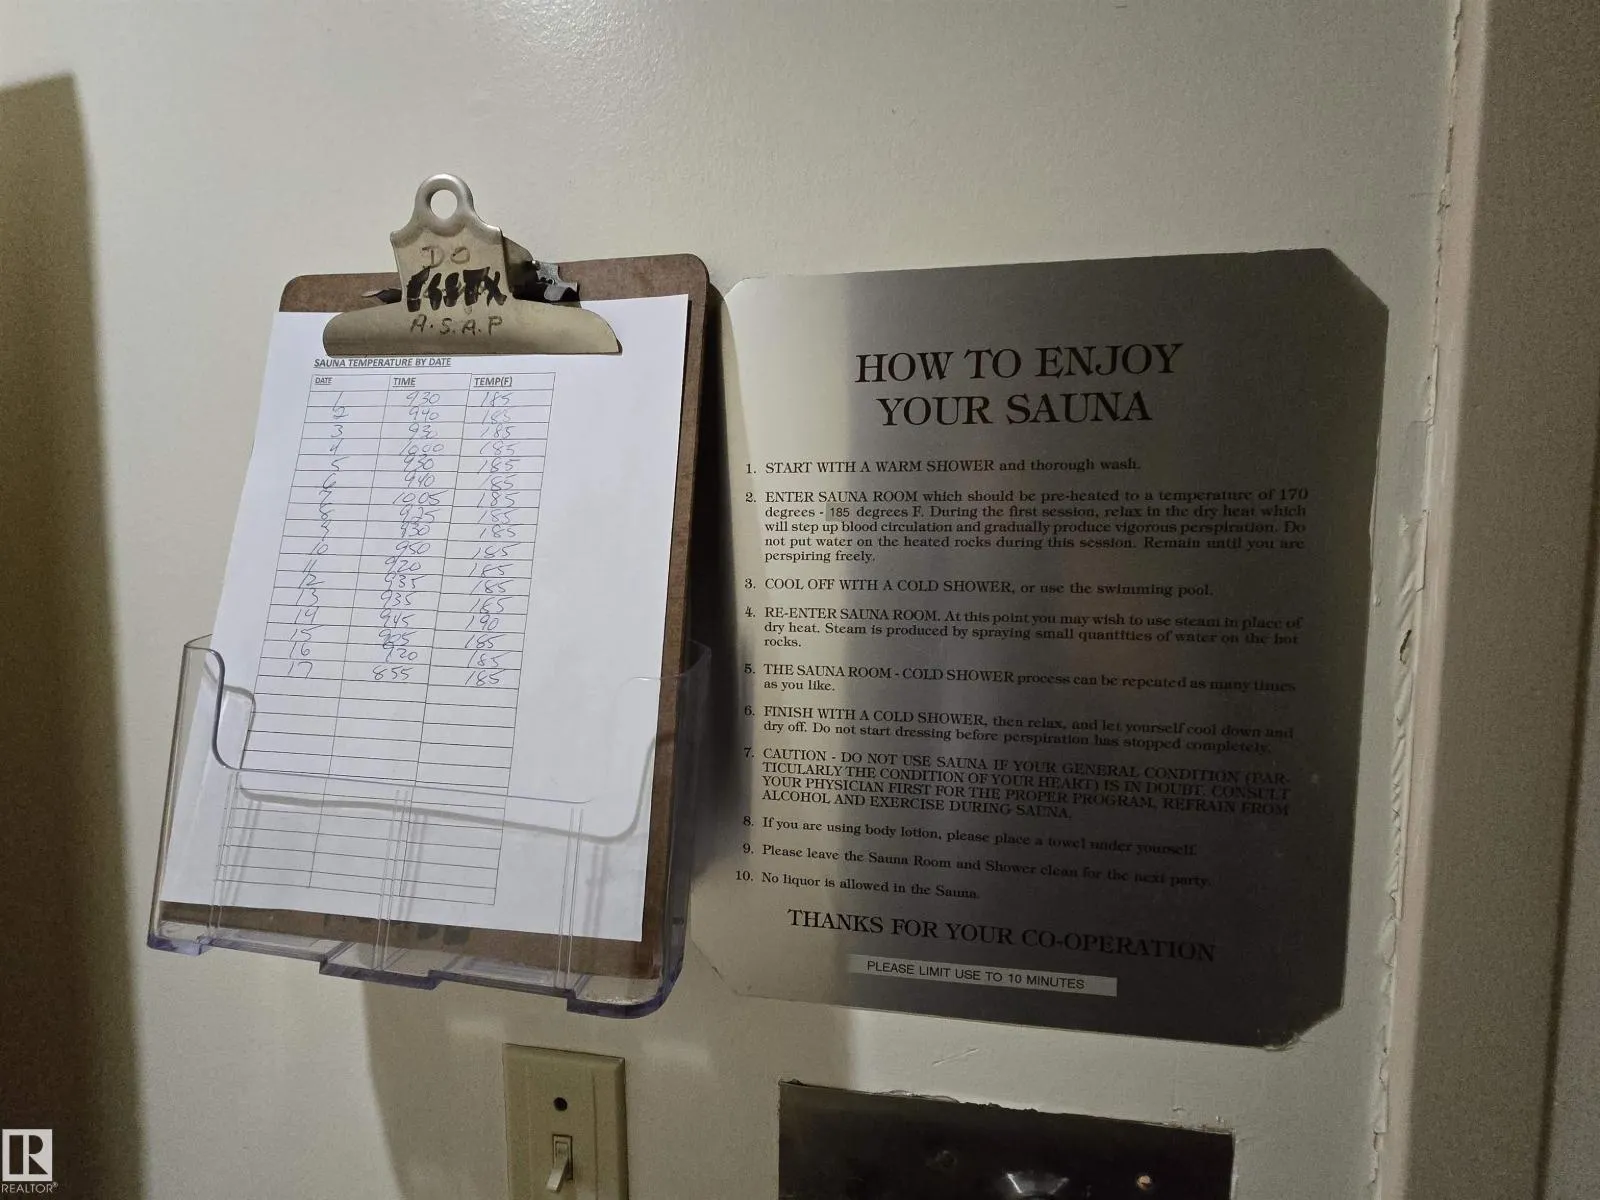 DO
A.S.A.P
SAUNA TEMPERATURE BY DATE
DATE TIME TEMP(F)
1 930 185
2 940 185
3 930 185
4 1000 185
5 930 185
6 940 185
7 1005 185
8 925 185
9 930 185
10 950 185
11 920 185
12 935 185
13 935 185
14 945 190
15 905 185
16 920 185
17 855 185
HOW TO ENJOY
YOUR SAUNA
1. START WITH A WARM SHOWER and thorough wash.
2. ENTER SAUNA ROOM which should be pre-heated to a temperature of 170
degrees - 185 degrees F. During the first session, relax in the dry heat which
will step up blood circulation and gradually produce vigorous perspiration. Do
not put water on the heated rocks during this session. Remain until you are
perspiring freely.
3. COOL OFF WITH A COLD SHOWER, or use the swimming pool.
4. RE-ENTER SAUNA ROOM. At this point you may wish to use steam in place of
dry heat. Steam is produced by spraying small quantities of water on the hot
rocks.
5. THE SAUNA ROOM - COLD SHOWER process can be repeated as many times
as you like.
6. FINISH WITH A COLD SHOWER, then relax, and let yourself cool down and
dry off. Do not start dressing before perspiration has stopped completely.
7. CAUTION - DO NOT USE SAUNA IF YOUR GENERAL CONDITION (PAR-
TICULARLY THE CONDITION OF YOUR HEART) IS IN DOUBT. CONSULT
YOUR PHYSICIAN FIRST FOR THE PROPER PROGRAM, REFRAIN FROM
ALCOHOL AND EXERCISE DURING SAUNA.
8. If you are using body lotion, please place a towel under yourself.
9. Please leave the Sauna Room and Shower clean for the next party.
10. No liquor is allowed in the Sauna.
THANKS FOR YOUR CO-OPERATION
PLEASE LIMIT USE TO 10 MINUTES
R
REALTOR®